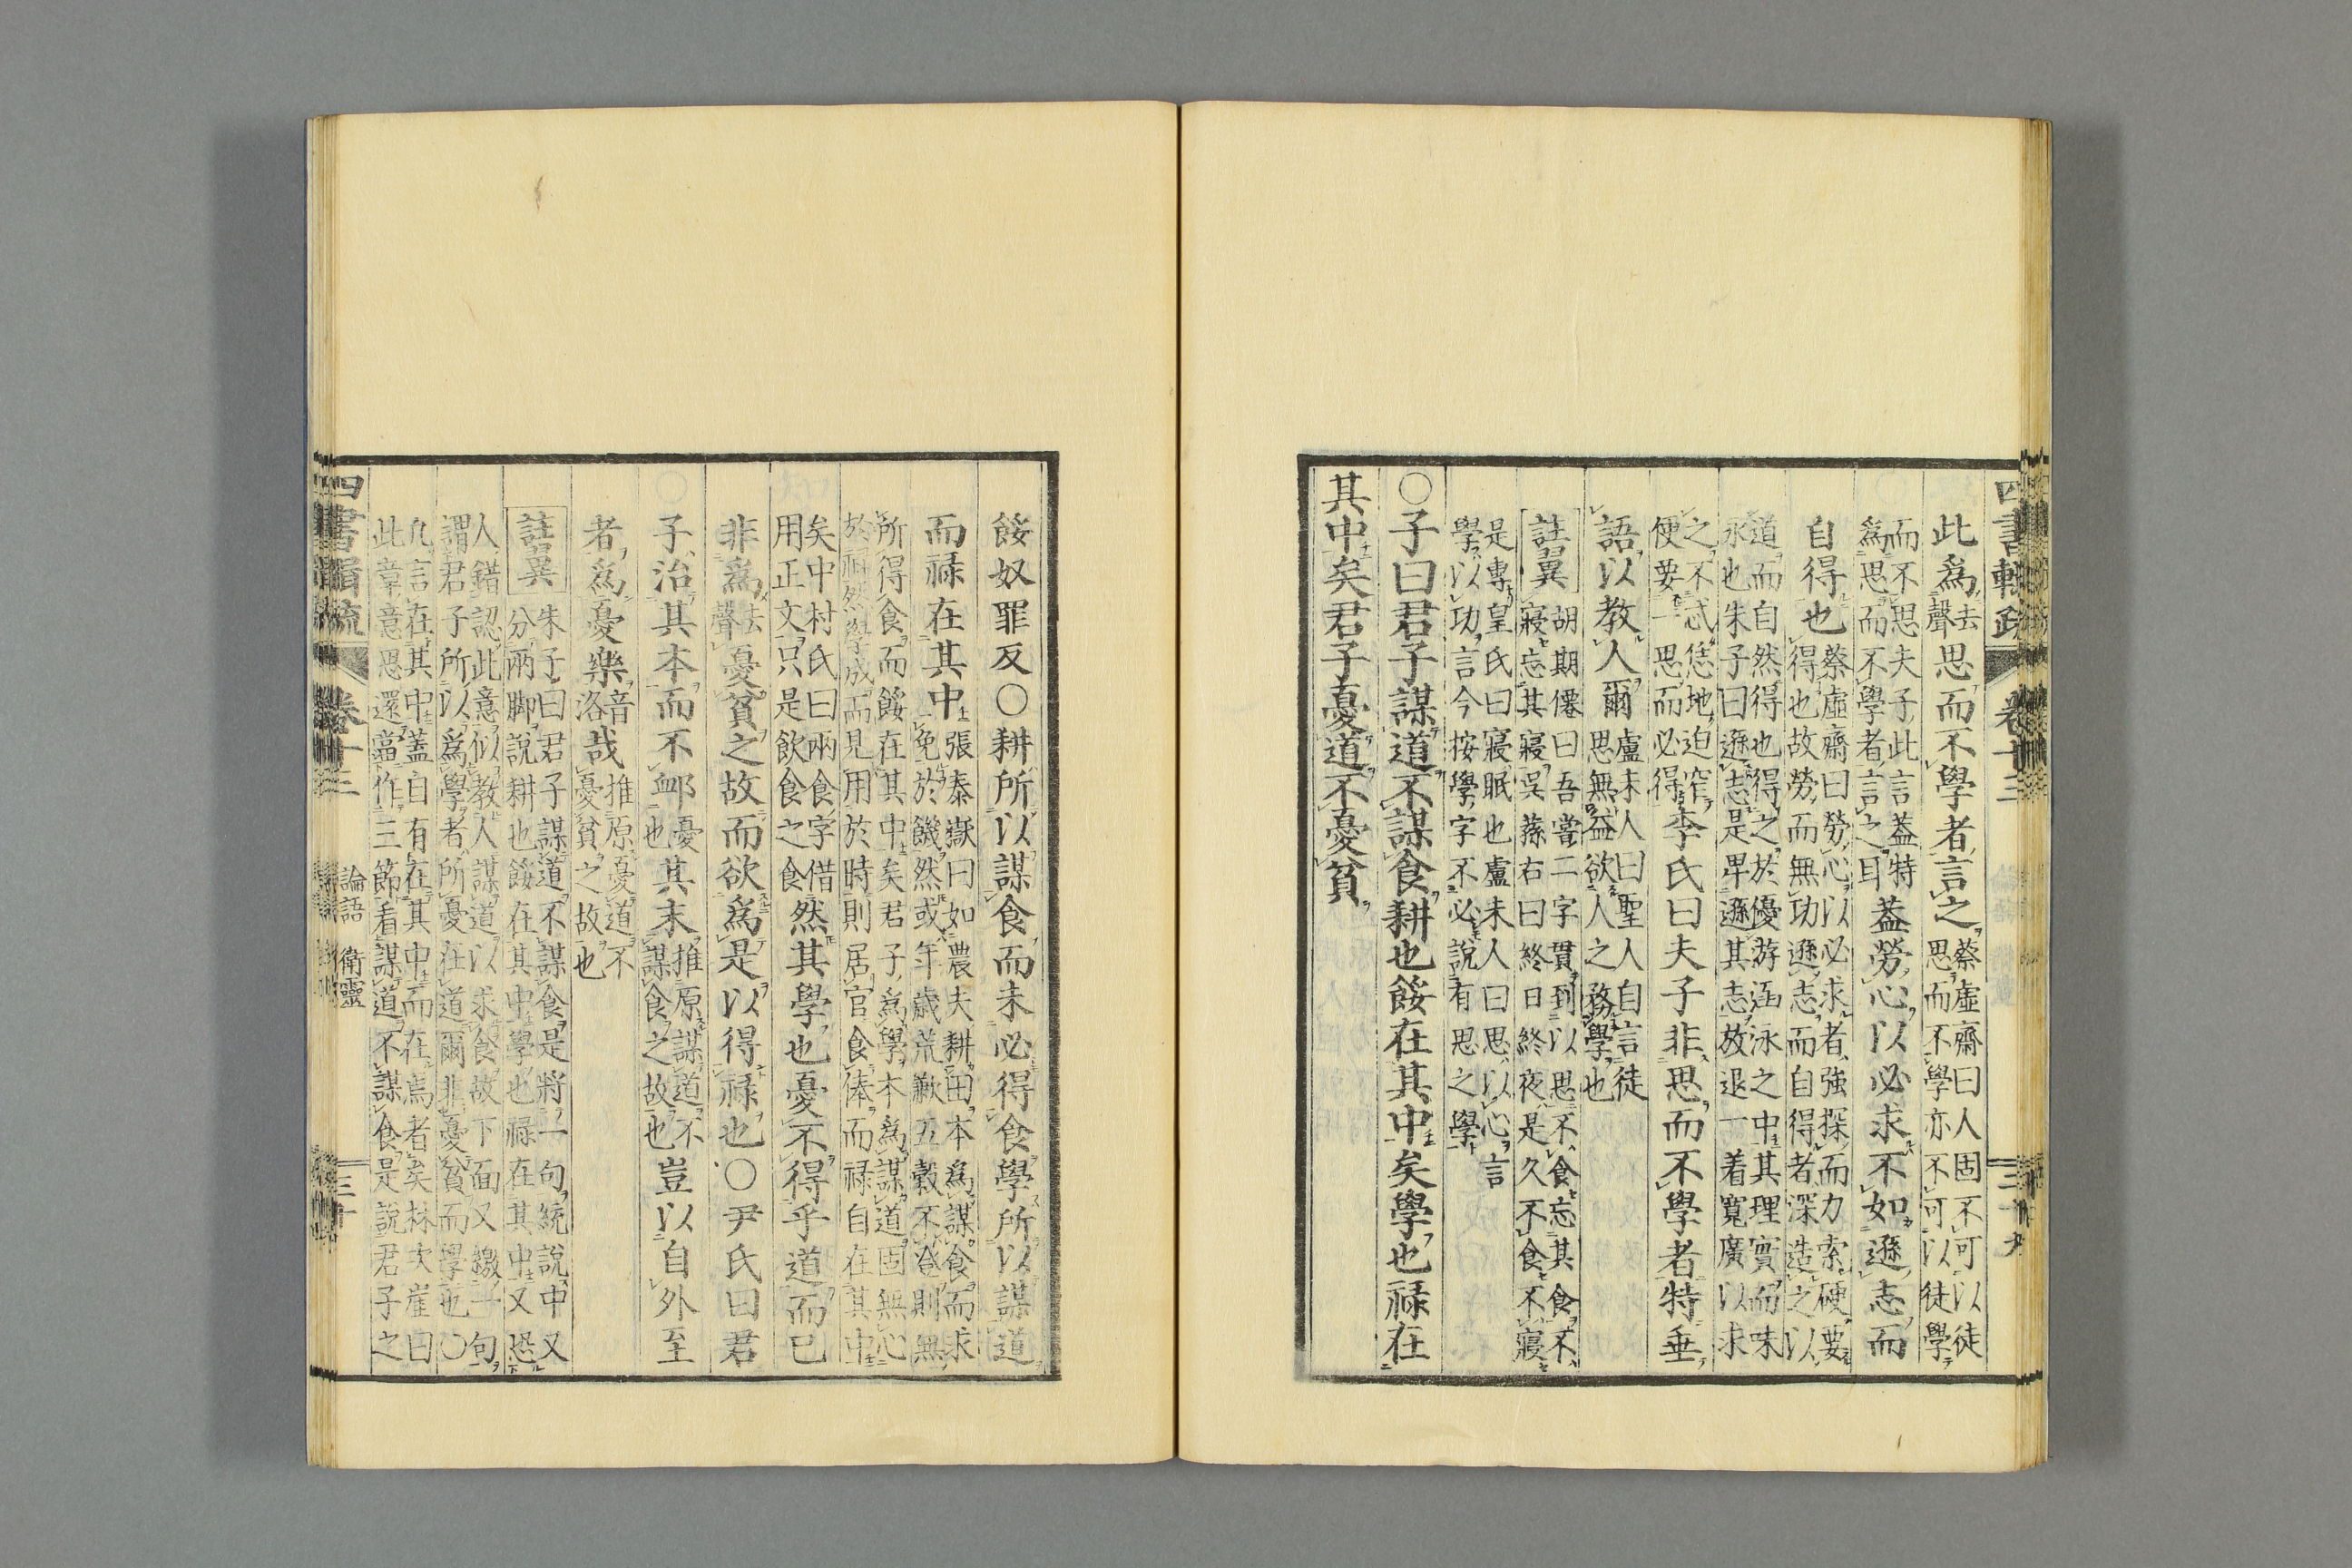 此爲去聲思而不學者言之蔡虛齋曰人固不可以徒
思而不學亦不可以徒學
而不思夫子此言葢特
爲思而不學者言之耳葢勞心以必求不如遜志而
自得也蔡虛齋曰勞心以必求者強探而力索硬要
得也故勞而無功遜志而自得者深造之以
道而自然得也得之於優游涵泳之中其理實而味
永也朱子曰遜志是卑遜其志放退一着寬廣以求
之不忒恁地迫窄
便要一思而必得李氏曰夫子非思而不學者特垂
語以教人爾盧未人曰聖人自言徒
思無益欲人之務學也
註翼胡期僊曰吾嘗二字貫到以思不食忘其食不
寢忘其寢吳蓀右曰終日終夜是久不食不寢
是專皇氏曰寢眠也盧未人曰思以心言
學以功言今按學字不必說有思之學
○子曰君子謀道不謀食耕也餒在其中矣學也祿在
其中矣君子憂道不憂貧
卷十三
餒奴罪反○耕所以謀食而未必得食學所以謀道
而祿在其中張泰嶽曰如農夫耕田本爲謀食而求
免於饑然或年歲荒歉五穀不登則無
所得食而餒在其中矣君子爲學本爲謀道固無心
於祿然學成而見用於時則居官食俸而祿自在其中
矣中村氏曰兩食字借
用正文只是飲食之食然其學也憂不得乎道而已
非爲去聲憂貧之故而欲爲是以得祿也○尹氏曰君
子治其本而不䘏憂
也其末推原謀道不
謀食之故也豈以自外至
者爲憂樂音洛哉推原憂道不
憂貧之故也
註翼朱子曰君子謀道不謀食是將一句統說中又
分兩脚說耕也餒在其中學也祿在其中又恐
人錯認此意似教人謀道以求食故下面又繳一句
謂君子所以爲學者所憂在道爾非憂貧而學也○
凡言在其中葢自有在其中而在焉者矣林次崖曰
此章意思還當作三節看謀道不謀食是說君子之
四書
卷十三
論語 衛靈
三十